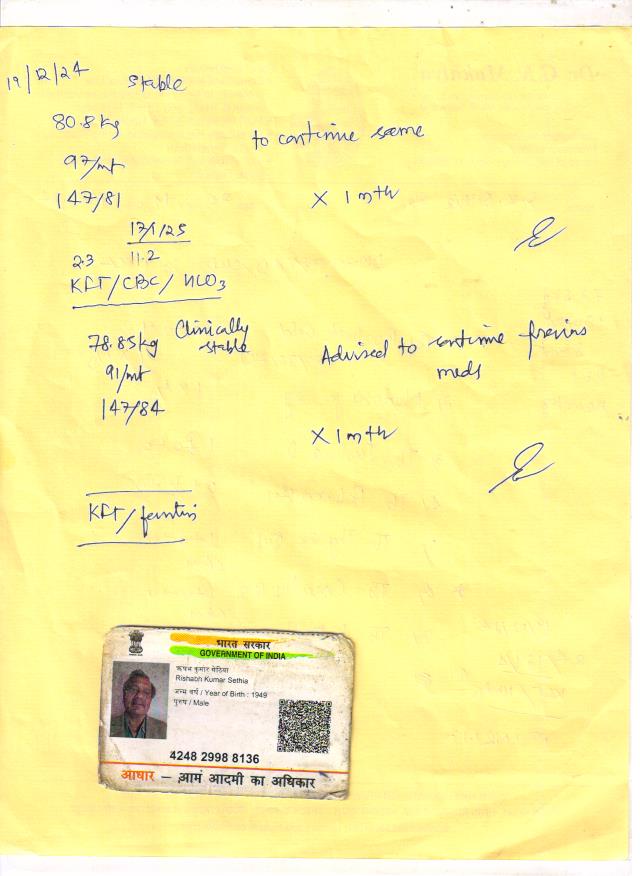 19/12/24 stable
80.8 kg
to continue same
97/mt
147/81 X 1 mth
17/1/25
2.3 11.2
KFT/CBC/HCO3
78.85 kg Clinically stable
Advised to continue previous meds
91/mt
147/84
X 1 mth
KFT/ferritin
भारत सरकार
GOVERNMENT OF INDIA
ऋषभ कुमार सेठिया
Rishabh Kumar Sethia
जन्म वर्ष / Year of Birth : 1949
पुरुष / Male
4248 2998 8136
आधार – आम आदमी का अधिकार